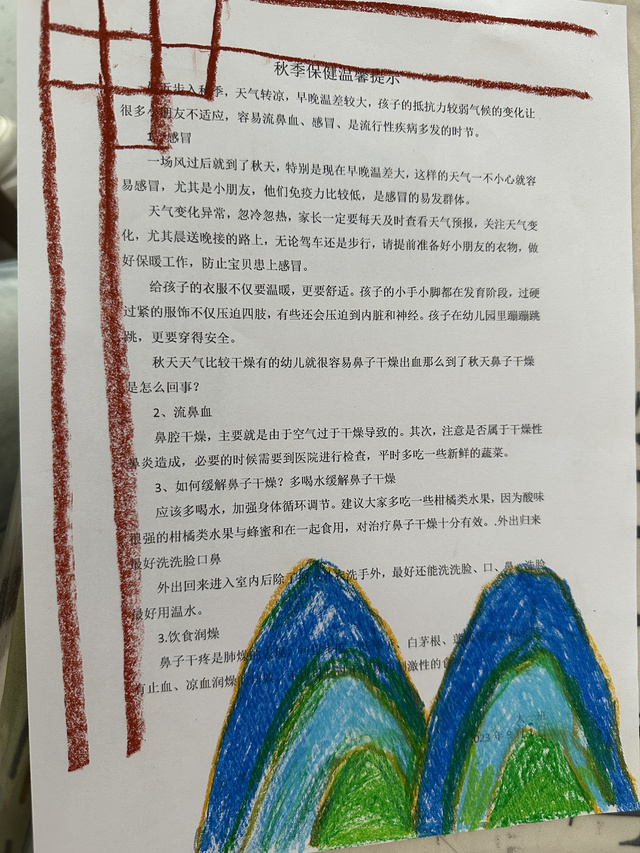 秋季保健温馨提示
步入秋季，天气转凉，早晚温差较大，孩子的抵抗力较弱气候的变化让
很多小朋友不适应，容易流鼻血、感冒、是流行性疾病多发的时节。
感冒
一场风过后就到了秋天，特别是现在早晚温差大，这样的天气一不小心就容
易感冒，尤其是小朋友，他们免疫力比较低，是感冒的易发群体。
天气变化异常，忽冷忽热，家长一定要每天及时查看天气预报，关注天气变
化，尤其晨送晚接的路上，无论驾车还是步行，请提前准备好小朋友的衣物，做
好保暖工作，防止宝贝患上感冒。
给孩子的衣服不仅要温暖，更要舒适。孩子的小手小脚都在发育阶段，过硬
过紧的服饰不仅压迫四肢，有些还会压迫到内脏和神经。孩子在幼儿园里蹦蹦跳
跳，更要穿得安全。
秋天天气比较干燥有的幼儿就很容易鼻子干燥出血那么到了秋天鼻子干燥
是怎么回事？
2、流鼻血
鼻腔干燥，主要就是由于空气过于干燥导致的。其次，注意是否属于干燥性
鼻炎造成，必要的时候需要到医院进行检查，平时多吃一些新鲜的蔬菜。
3、如何缓解鼻子干燥？多喝水缓解鼻子干燥
应该多喝水，加强身体循环调节。建议大家多吃一些柑橘类水果，因为酸味
很强的柑橘类水果与蜂蜜和在一起食用，对治疗鼻子干燥十分有效。.外出归来
最好洗洗脸口鼻
外出回来进入室内后除了洗手外，最好还能洗洗脸、口、鼻，洗脸
最好用温水。
3.饮食润燥
鼻子干疼是肺燥 白茅根、
有止血、凉血润燥 刺激性的食
2023年9